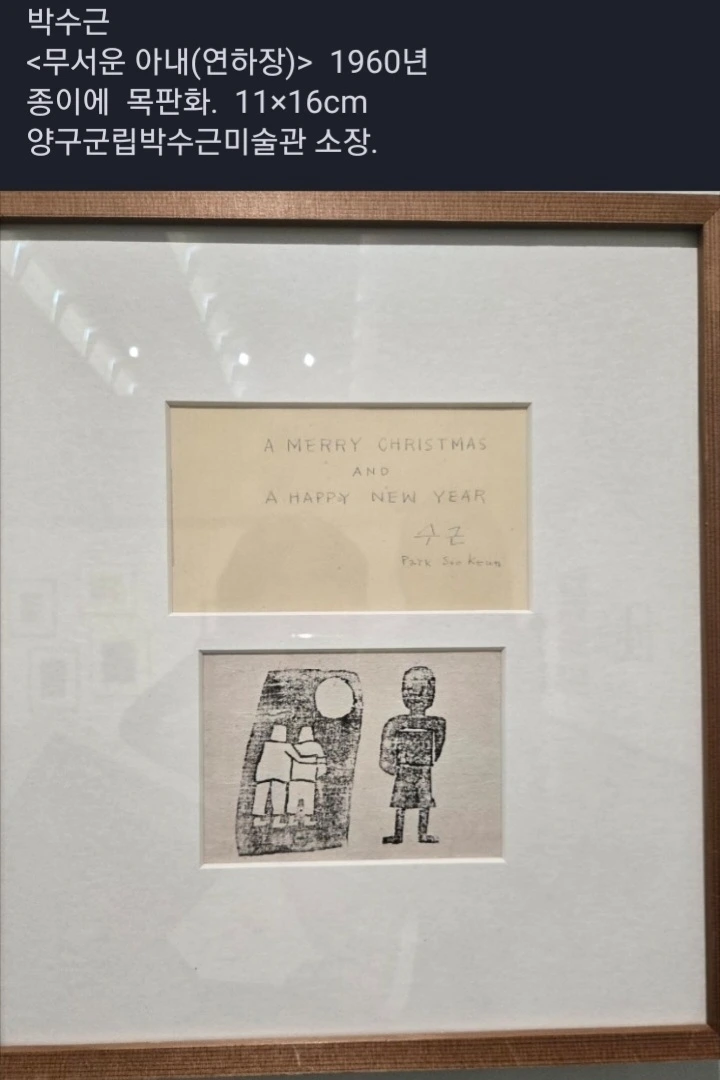 박수근
<무서운 아내(연하장)> 1960년
종이에 목판화. 11×16cm
양구군립박수근미술관 소장.
A MERRY CHRISTMAS
AND
A HAPPY NEW YEAR
수근
Park Soo Keun